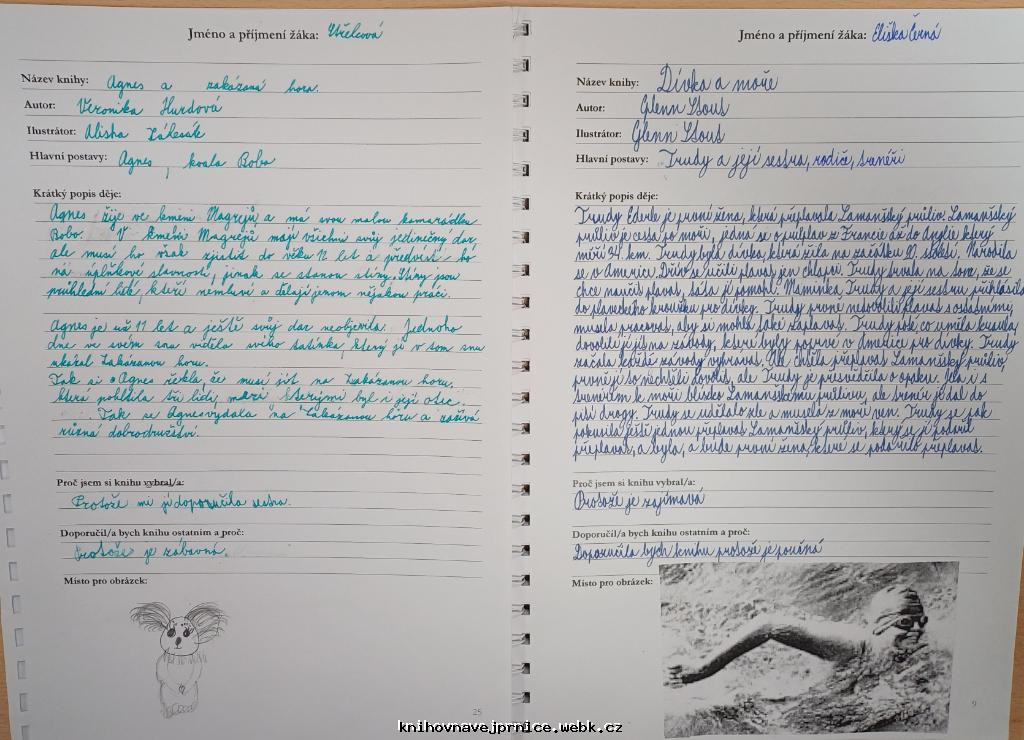 Jméno a příjmení žáka: Střelcová
Název knihy: Agnes a zakázaná hora.
Autor: Veronika Hurdová
Ilustrátor: Alisha Zálesák
Hlavní postavy: Agnes, koala Bobo
Krátký popis děje:
Agnes žije ve kmeni Magrejů a má svou malou kamarádku
Bobo. V kmeni Magrejů mají všichni svůj jedinečný dar,
ale musí ho však zjistit do věku 12 let a předvést
úplňkové slavnosti, jinak se stanou stíny. Stíny jsou
průhlední lidé, kteří nemluví a dělají jenom nějakou práci.
Agnes je už 11 let a ještě svůj dar neobjevila. Jednoho
dne ve svém snu viděla svého tatínka, který jí v tom snu
ukázal Zakázanou horu.
Tak si Agnes řekla, že musí jít na Zakázanou horu,
která pohltila tři lidi, mezi kterými byl i její otec.
Tak se Agnes vydala na Zakázanou horu a zažívá
různá dobrodružství.
Proč jsem si knihu vybral/a:
Protože mi ji doporučila sestra.
Doporučil/a bych knihu ostatním a proč:
Protože je zábavná.
Místo pro obrázek:
25
Jméno a příjmení žáka: Eliška Černá
Název knihy: Dívka a moře
Autor: Glenn Stout
Ilustrátor: Glenn Stout
Hlavní postavy: Trudy a její sestra, rodiče, trenéři
Krátký popis děje:
Trudy Ederle je první žena, která přeplavala Lamanšský průliv. Lamanšský
průliv je cesta po moři, jedná se o průplav z Francie až do Anglie který
měří 34 km. Trudy byla dívka, která žila na začátku 20. století. Narodila
se v Americe. Dříve se učili plavat jen chlapci. Trudy trvala na tom, že se
chce naučit plavat, táta jí pomohl. Maminka Trudy a její sestru přihlásila
do plaveckého kroužku pro dívky. Trudy prvně nepovolili plavat s ostatními,
musela pracovat, aby si mohla také zaplavat. Trudy pak, co uměla kraula,
dovolili jí jít na závody, které byly poprvé v Americe pro dívky. Trudy
začala každé závody vyhrávat. chtěla přeplavat Lamanšský průliv,
prvně jí to nechtěli dovolit, ale Trudy je přesvědčila o opaku. Jela i s
trenérem k moři blízko Lamanšskému průlivu, ale trenér jí dal do
pití drogy. Trudy se udělalo zle a musela z moře ven. Trudy se pak
pokusila ještě jednou přeplavat Lamanšský průliv, který se jí podařil
přeplavat, a byla, a bude první žena, které se podařilo přeplavat.
Proč jsem si knihu vybral/a:
Protože je zajímavá
Doporučil/a bych knihu ostatním a proč:
Doporučila bych knihu protože je poučná
Místo pro obrázek:
9
knihovnavejprnice.webk.cz